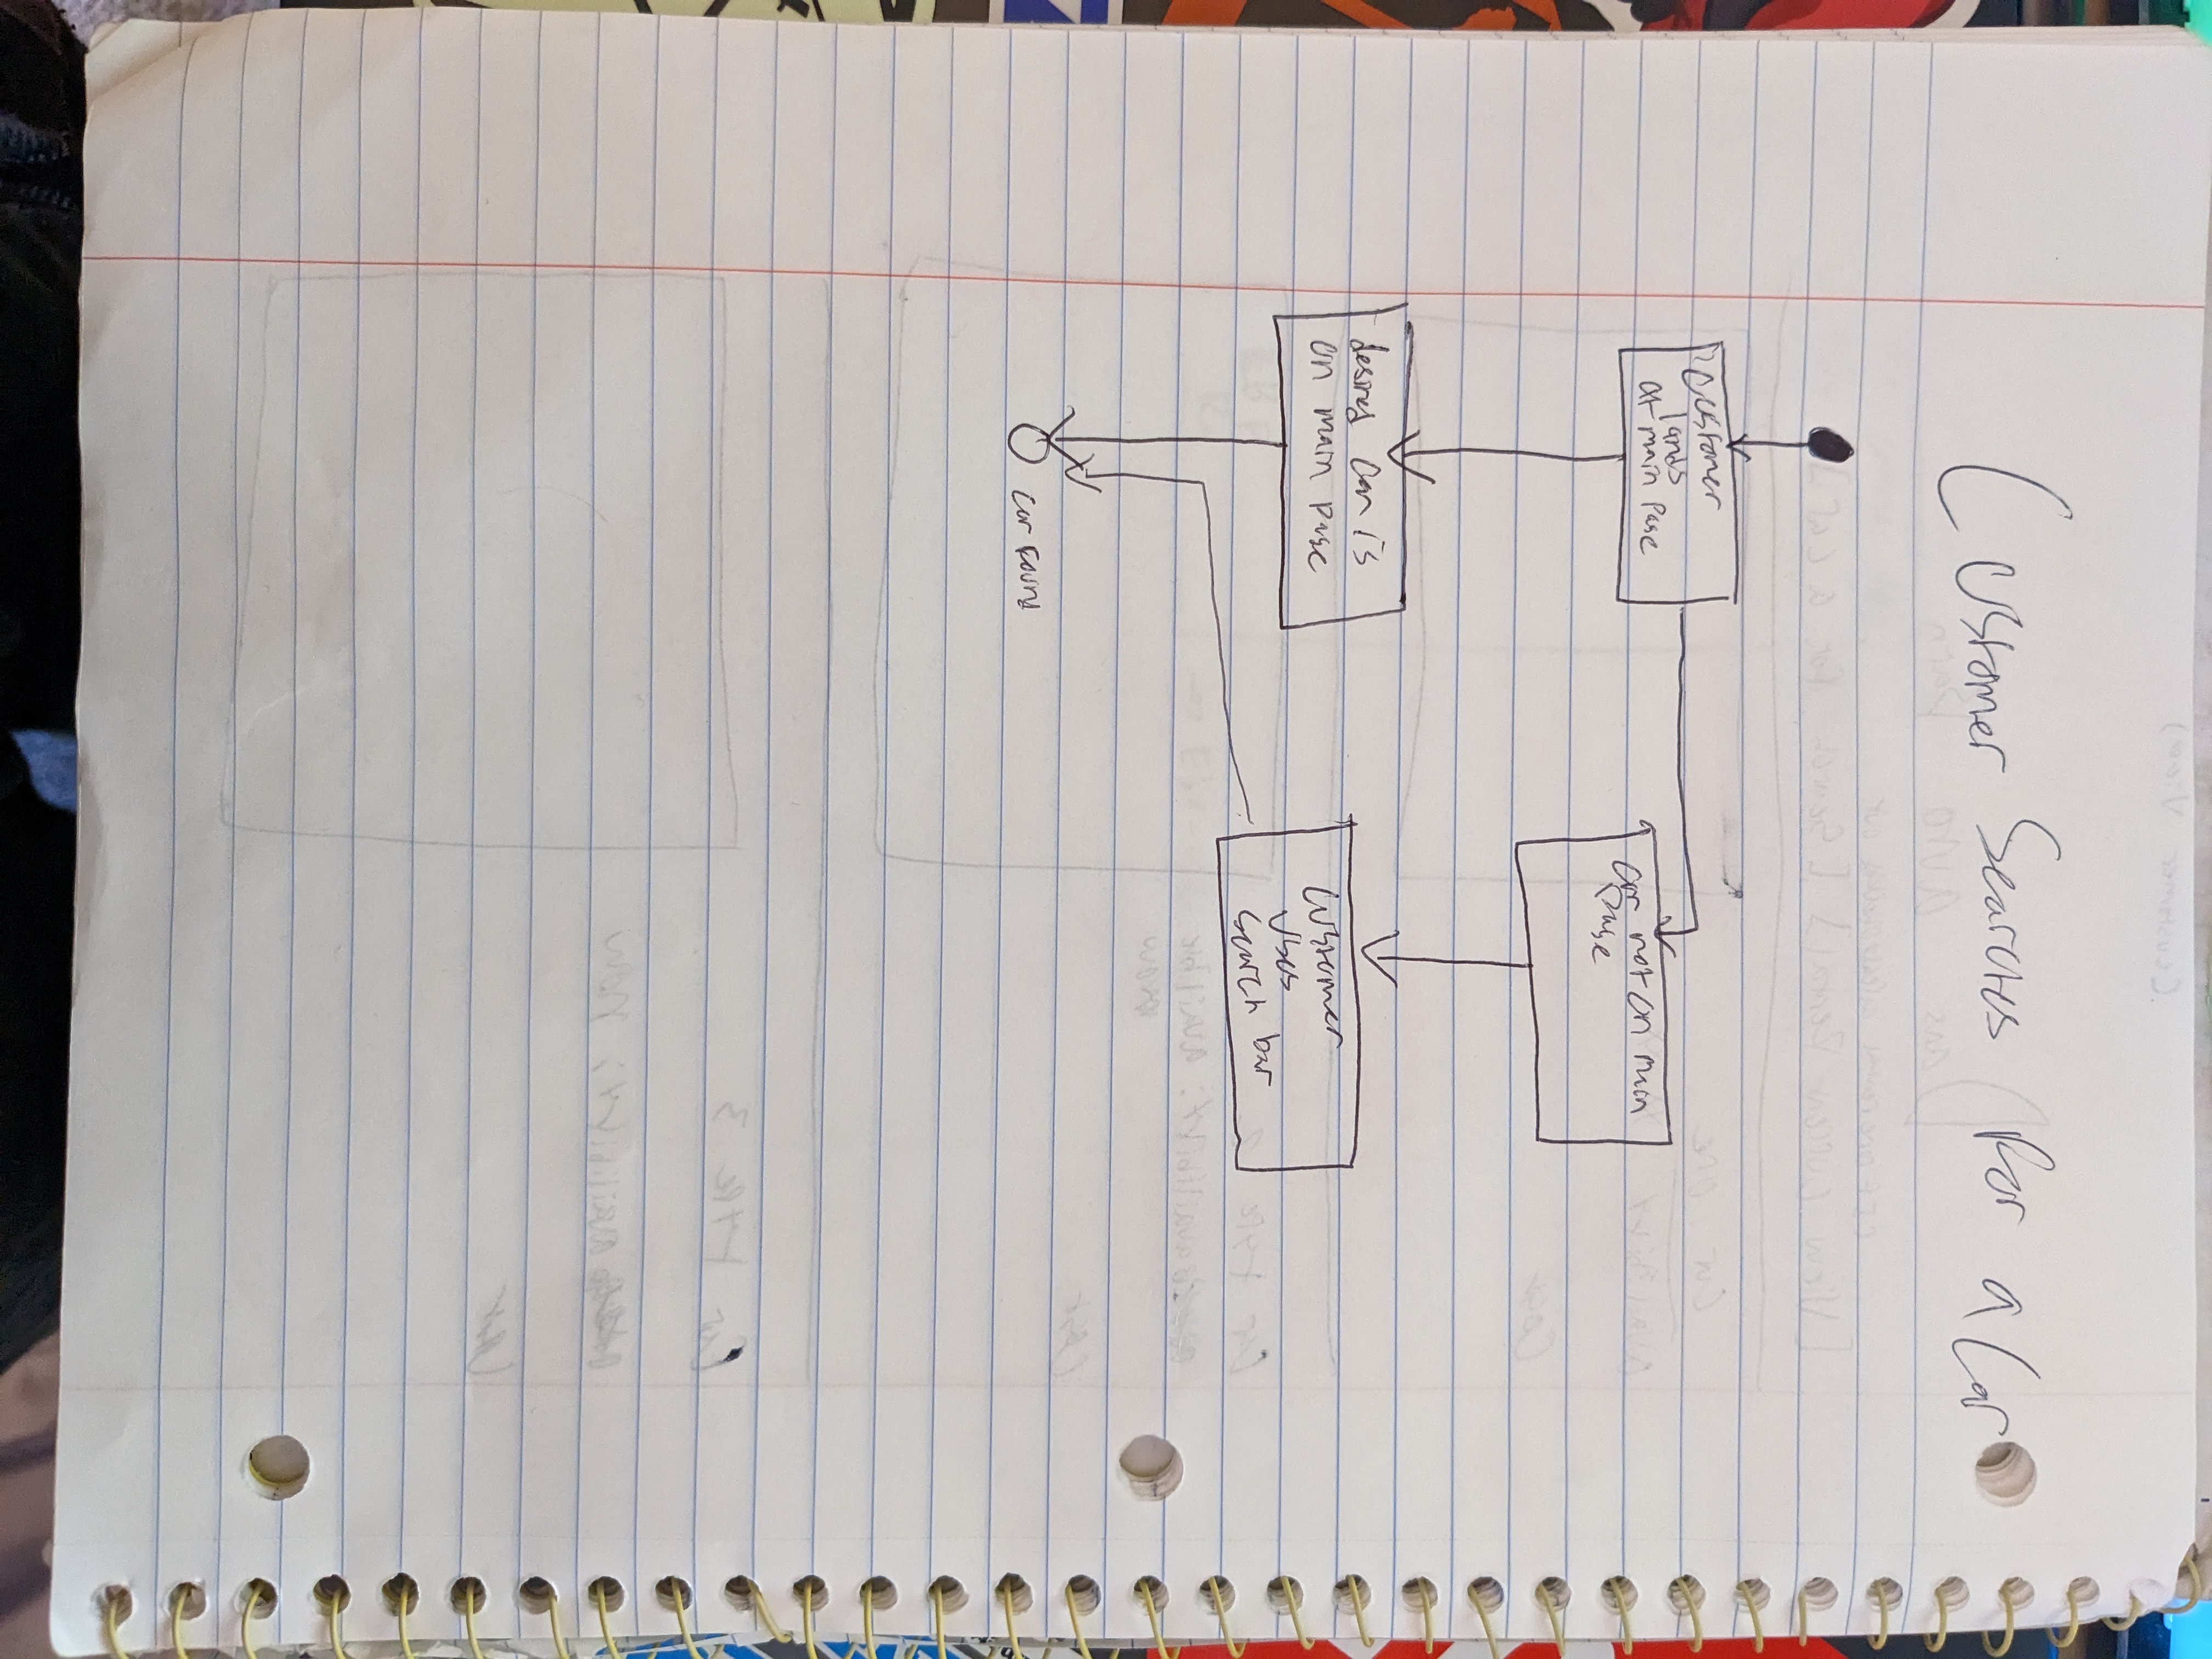 Customer Searches for a Car
Customer
lands
at main page
desired Car is
on main page
Car not on main
page
Customer
Uses
search bar
Car found